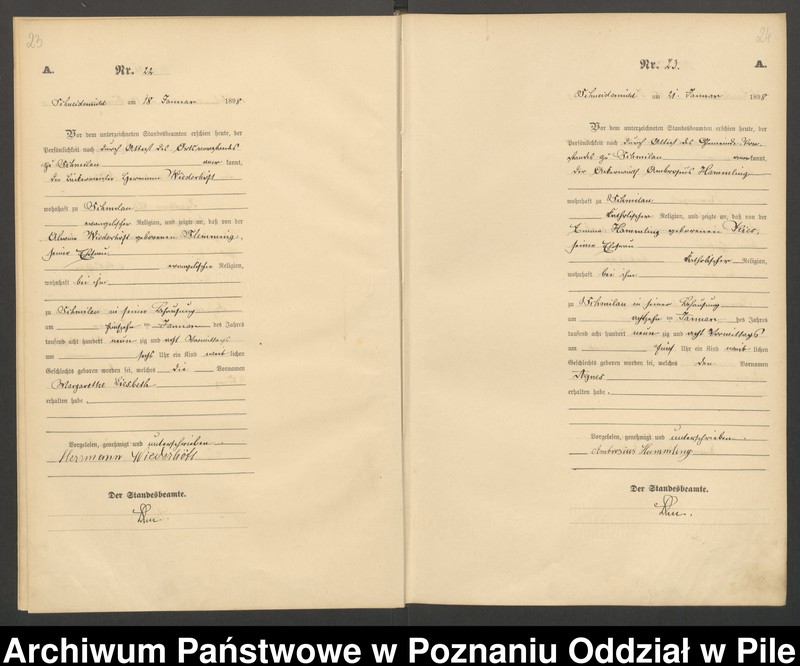 23
A.
Nr. 22
Schneidemühl am 18 Januar 1898
Vor dem unterzeichneten Standesbeamten erschien heute, der
Persönlichkeit nach durch Attest des Ortsvorstandes
zu Schmilau kannt,
der Herrmann Wiederhöft
wohnhaft zu Schmilau
evangelischer Religion, und zeigte an, daß von der
Wiederhöft geborenen Flemming,
seiner Ehefrau
evangelischer Religion,
wohnhaft bei ihm
zu Schmilau in seiner Behausung
am fünfzehn ten Januar des Jahres
tausend acht hundert neun zig und acht Vormittags
um sechs Uhr ein Kind weib lichen
Geschlechts geboren worden sei, welches die Vornamen
Margarethe Liesbeth
erhalten habe.
Vorgelesen, genehmigt und unterschrieben
Herrmann Wiederhöft
Der Standesbeamte.
24
Nr. 23.
A.
Schneidemühl am 21 Januar 1898
Vor dem unterzeichneten Standesbeamten erschien heute, der
Persönlichkeit nach durch Attest des Gemeinde Vor-
standes zu Schmilau kannt,
der Ackerwirth Ambrosius Hammling
wohnhaft zu Schmilau
katholischer Religion, und zeigte an, daß von der
Emma Hammling geborenen
seiner Ehefrau
katholischer Religion,
wohnhaft bei ihm
zu Schmilau in seiner Behausung
am achtzehn ten Januar des Jahres
tausend acht hundert neun zig und acht Vormittags
um fünf Uhr ein Kind weib lichen
Geschlechts geboren worden sei, welches den Vornamen
Agnes
erhalten habe.
Vorgelesen, genehmigt und unterschrieben
Ambrosius Hammling
Der Standesbeamte.
Archiwum Państwowe w Poznaniu Oddział w Pile